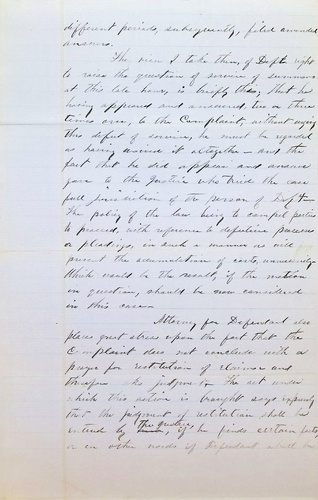 different periods, subsequently, filed amended
answers.
The view I take then, of Defts right
to raise the question of service of summons
at this late hour, is briefly this; that he
having appeared and answered two or three
times over, to the Complaint, without urging
this defect of service, he must be regarded
as having waived it altogether – and the
fact that he did appear and answer
gave to the Justice who tried the case
full jurisdiction of the person of Deft –
The policy of the law being to compel parties
to proceed, with reference to defective processes
or pleadings, in such a manner as will
prevent the accumulation of costs, unnecessarily
Which would be the result, if the motion
in question, should be now considered
in this case.
Attorney for Defendant also
places great stress upon the fact that the
Complaint does not conclude with a
prayer for restitution of claims and
therefore no judgment. The act under
which this action is brought says expressly
that the judgment of restitution shall be
entered by the Justice, if he finds certain facts,
or in other words if Defendant